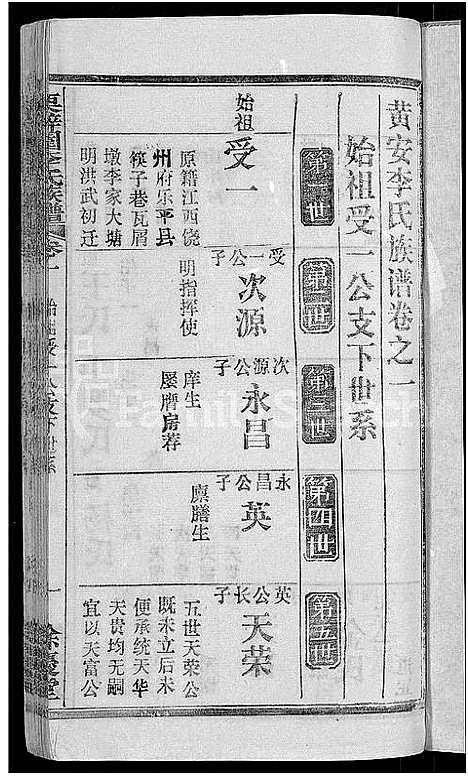 黄安李氏族谱卷之一
始祖受一公支下世系
第一世
始祖
受一
原籍江西饶
州府乐平县
筷子巷瓦屑
墩李家大塘
明洪武初迁
第二世
受一公子
次源
明指挥使
第三世
次源公子
永昌
庠生
屡膺房荐
第四世
永昌公子
英
廪膳生
第五世
英公长子
天荣
五世天荣公
既未立后未
便承统天华
天贵均无嗣
宜以天富公
李氏族谱 卷一 始祖受一公支下世系 一